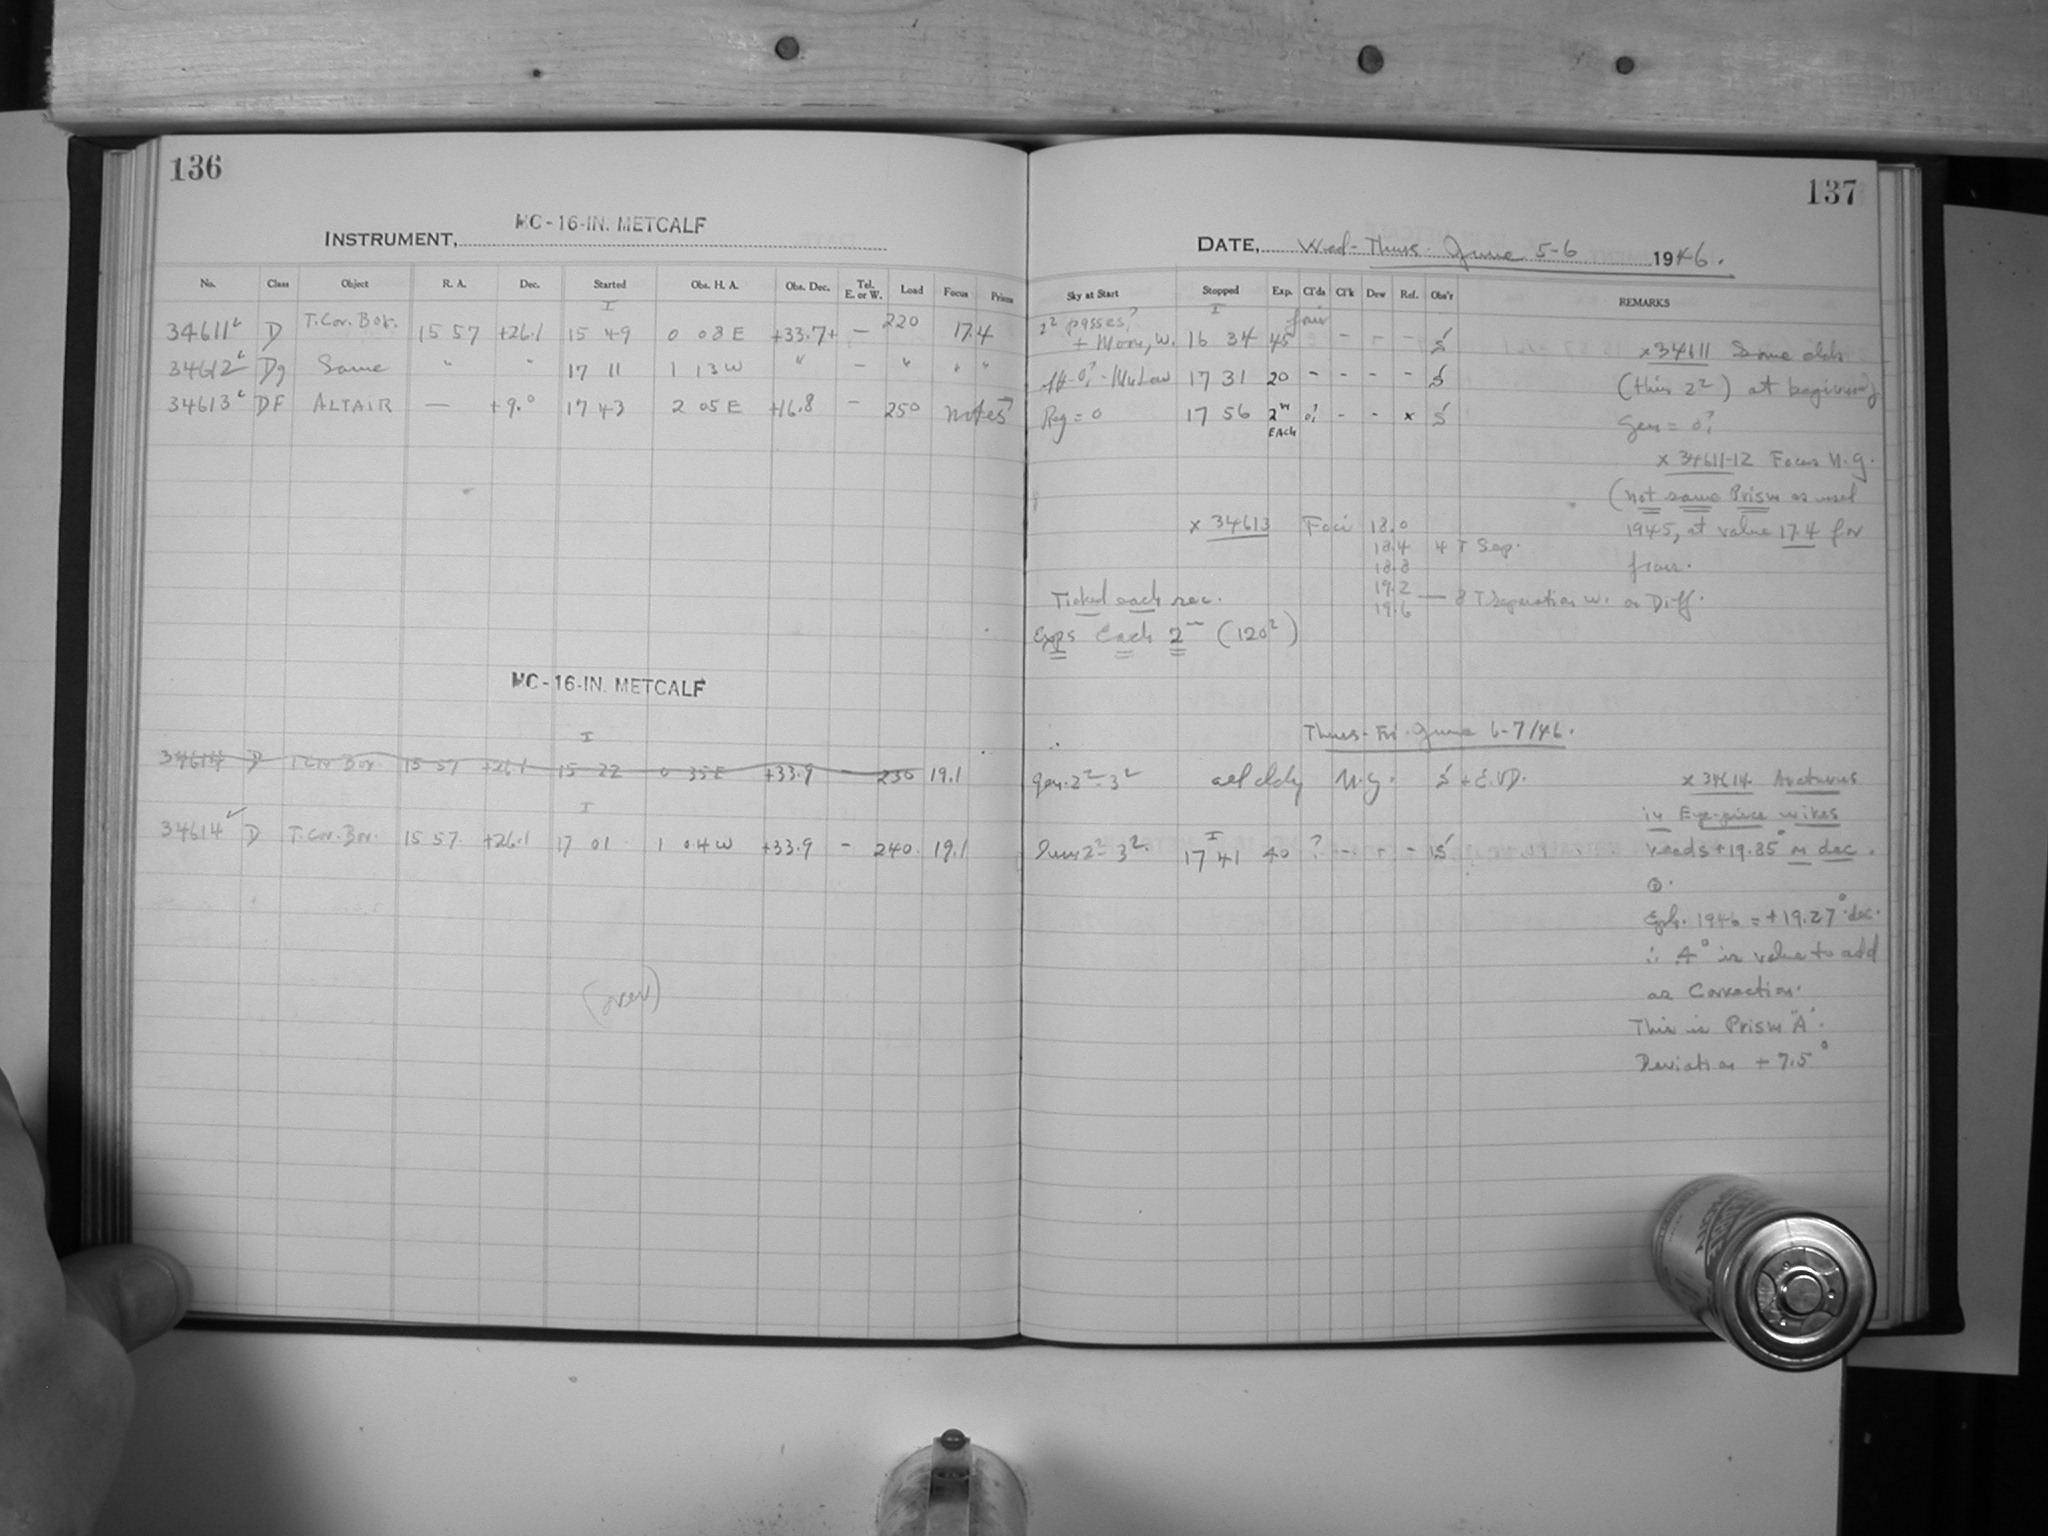 136
137
INSTRUMENT, MC-16-IN. METCALF
DATE, Wed-Thurs. June 5-6 1946.
No. Class Object R. A. Dec. Started Obs. H. A. Obs. Dec. Tel. E. or W. Load Focus Prisms
Sky at Start Stopped Exp. Cl'ds Cl'k Dew Ref. Obs'r REMARKS
34611 D T.Cor.Bor. 15 57 +26.1 15 49 0 08 E +33.7+ — 220 17.4
+ Moon, W. 16 34 45 - - - S
34612 Dg Same " " 17 11 1 13 W " — " " "
17 31 20 - - - - S
34613 DF ALTAIR — +9.° 17 43 2 05 E +16.8 — 250 notes
Reg = 0 17 56 2m EACH 0? - - x S
x 34611 Some clds
(this 2²) at beginning
Gen = 0?
x 34611-12 Focus N.g.
(not same Prism as used
1945, at value 17.4 for
x 34613 Foci 18.0
18.4 4 T Sep.
18.8
19.2
19.6 — 8 T Separation w. as Diff.
Ticked each sec.
Exps Each 2m (120²)
MC-16-IN. METCALF
Thurs-Fri. June 6-7/46.
34614 D T.Cor.Bor. 15 57 +26.1 15 22 0 35 E +33.9 — 230 19.1
gen. 2²-3² all cldy N.g. S + E.VD.
34614 D T.Cor.Bor. 15 57 +26.1 17 01 1 04 W +33.9 - 240 19.1
2²-3² 17 41 40 ? - - - S
x 34614 Arcturus
in Eye-piece wires
reads +19.85° in dec.
Eph. 1946 = +19.27° dec.
∴ .4° is value to add
as Correction.
This is Prism "A".
Deviation + 7.5°
(over)